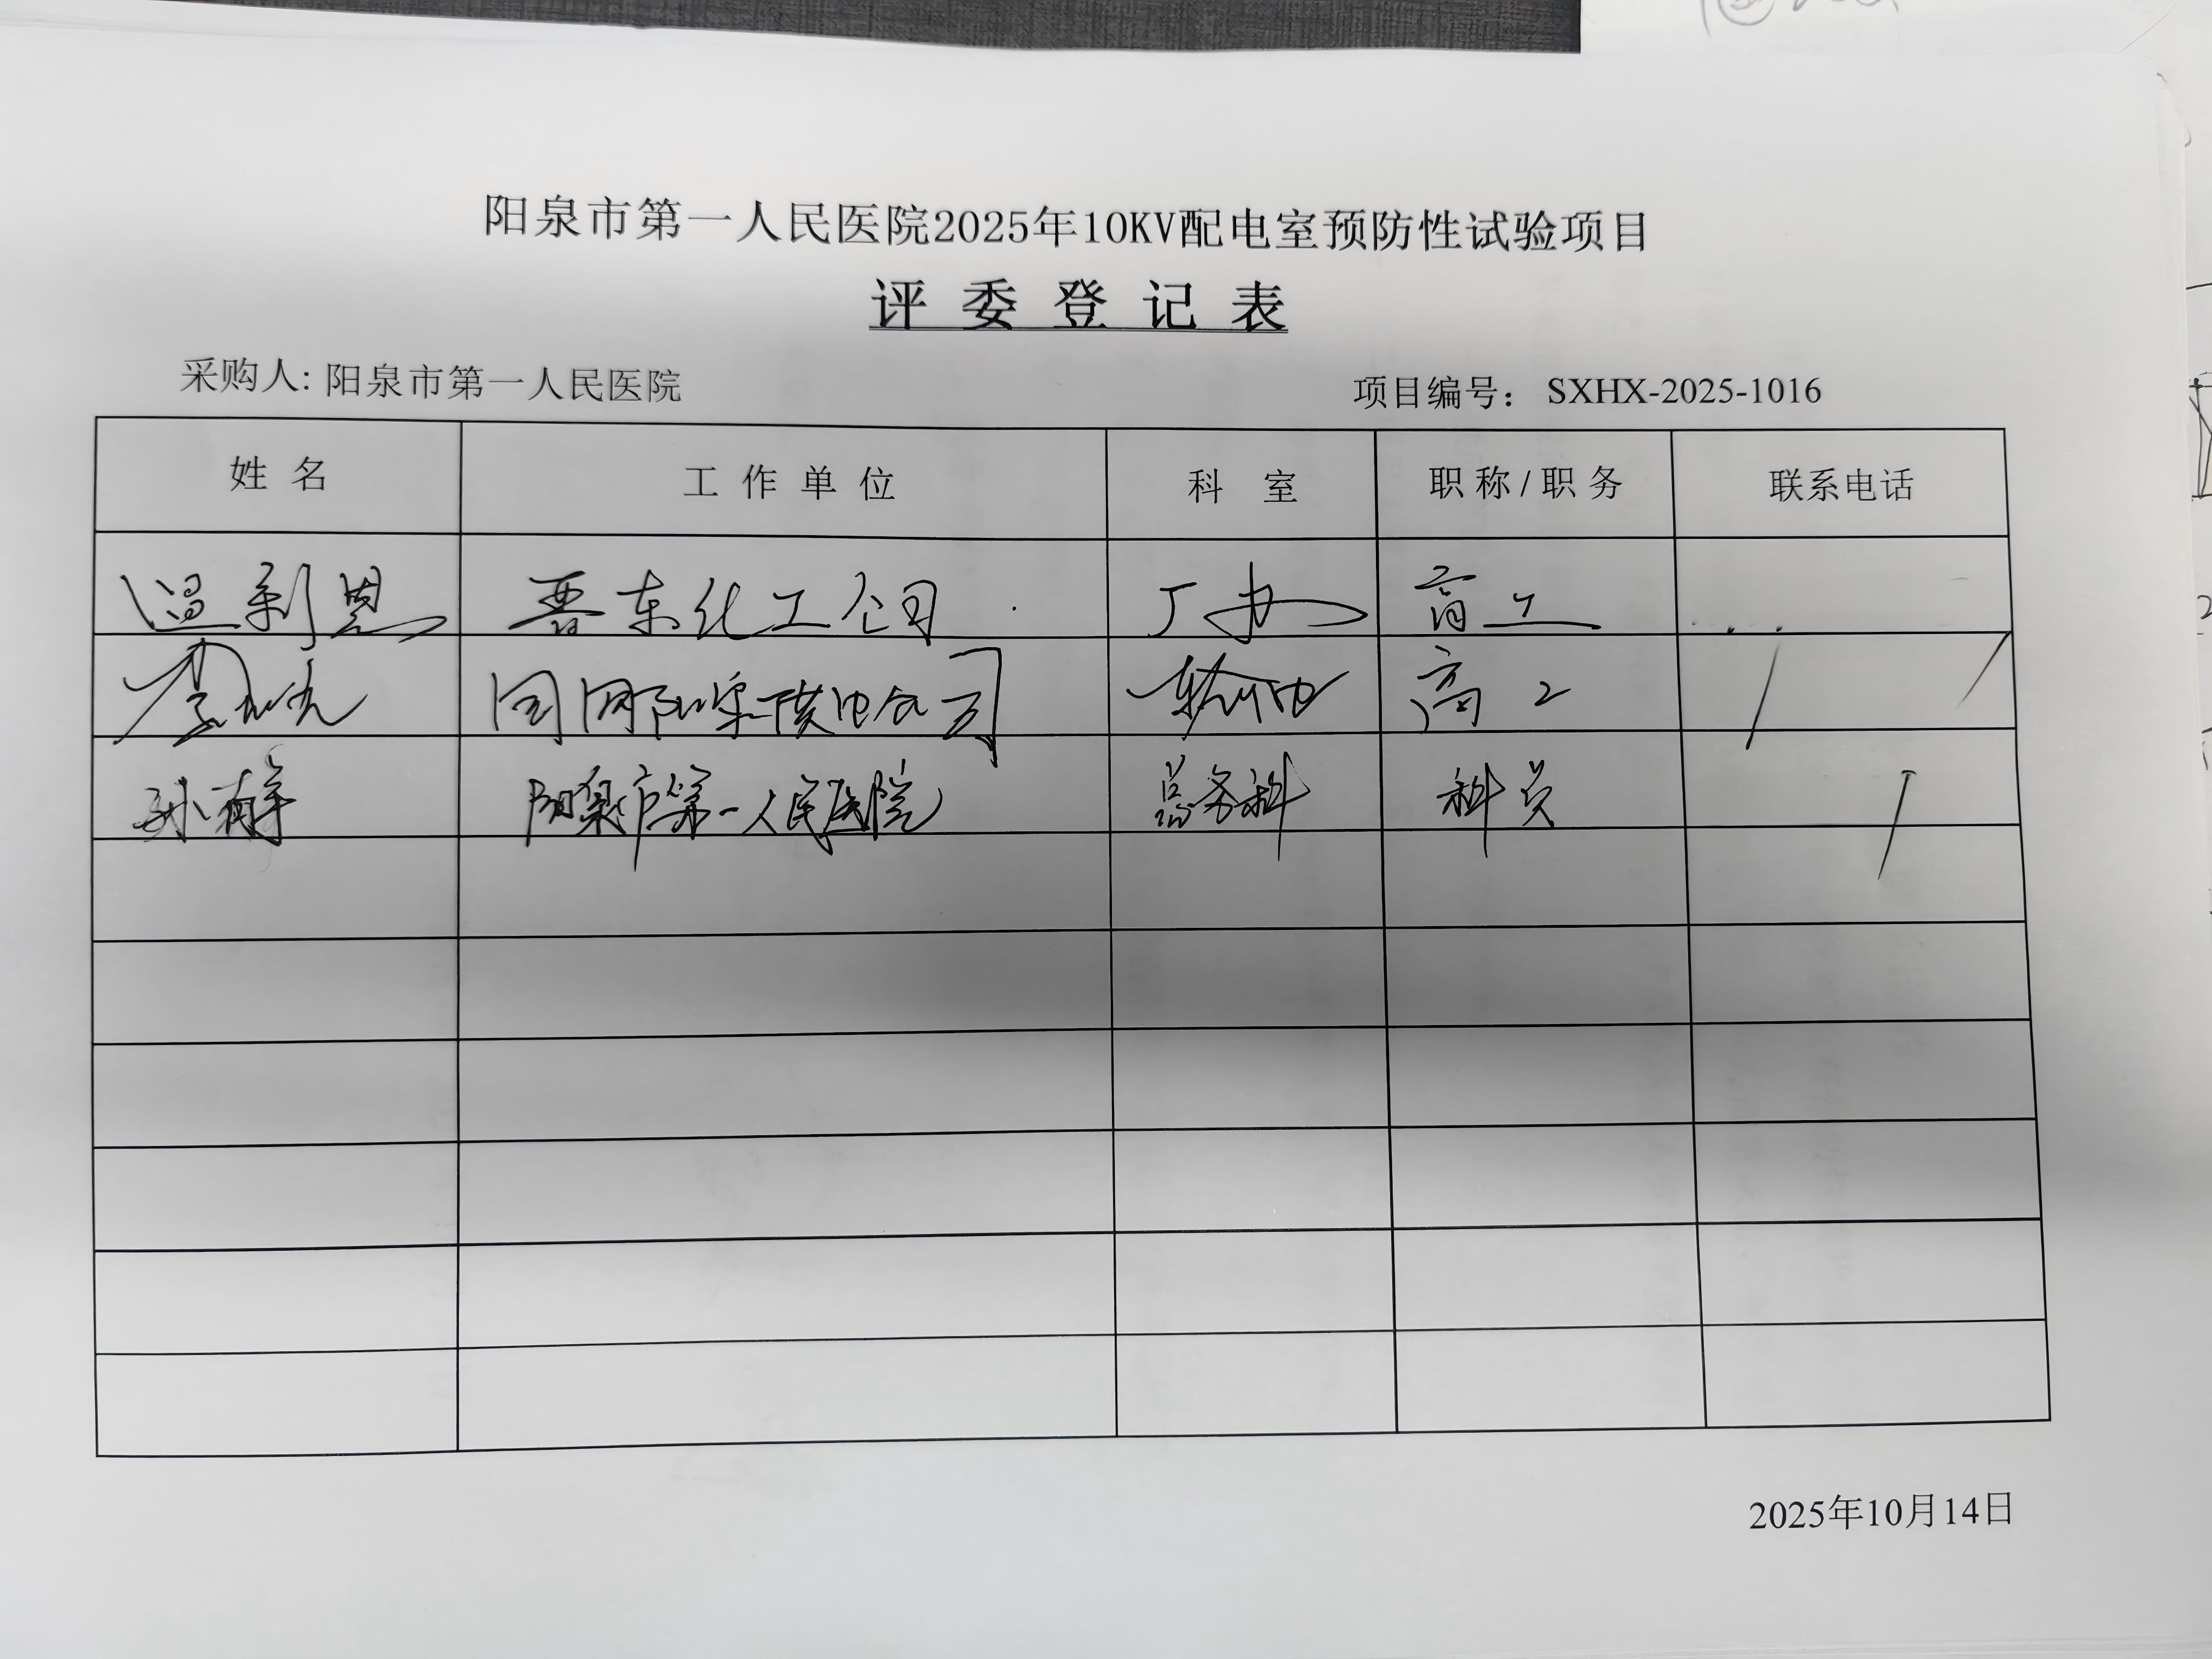 阳泉市第一人民医院2025年10KV配电室预防性试验项目
评委登记表
采购人: 阳泉市第一人民医院 项目编号： SXHX-2025-1016
姓名 工作单位 科室 职称/职务 联系电话
温利恩 晋东化工公司 厂办 高工
李 国网阳泉供电公司 输电 高工
孙 阳泉市第一人民医院 总务科 科员
2025年10月14日